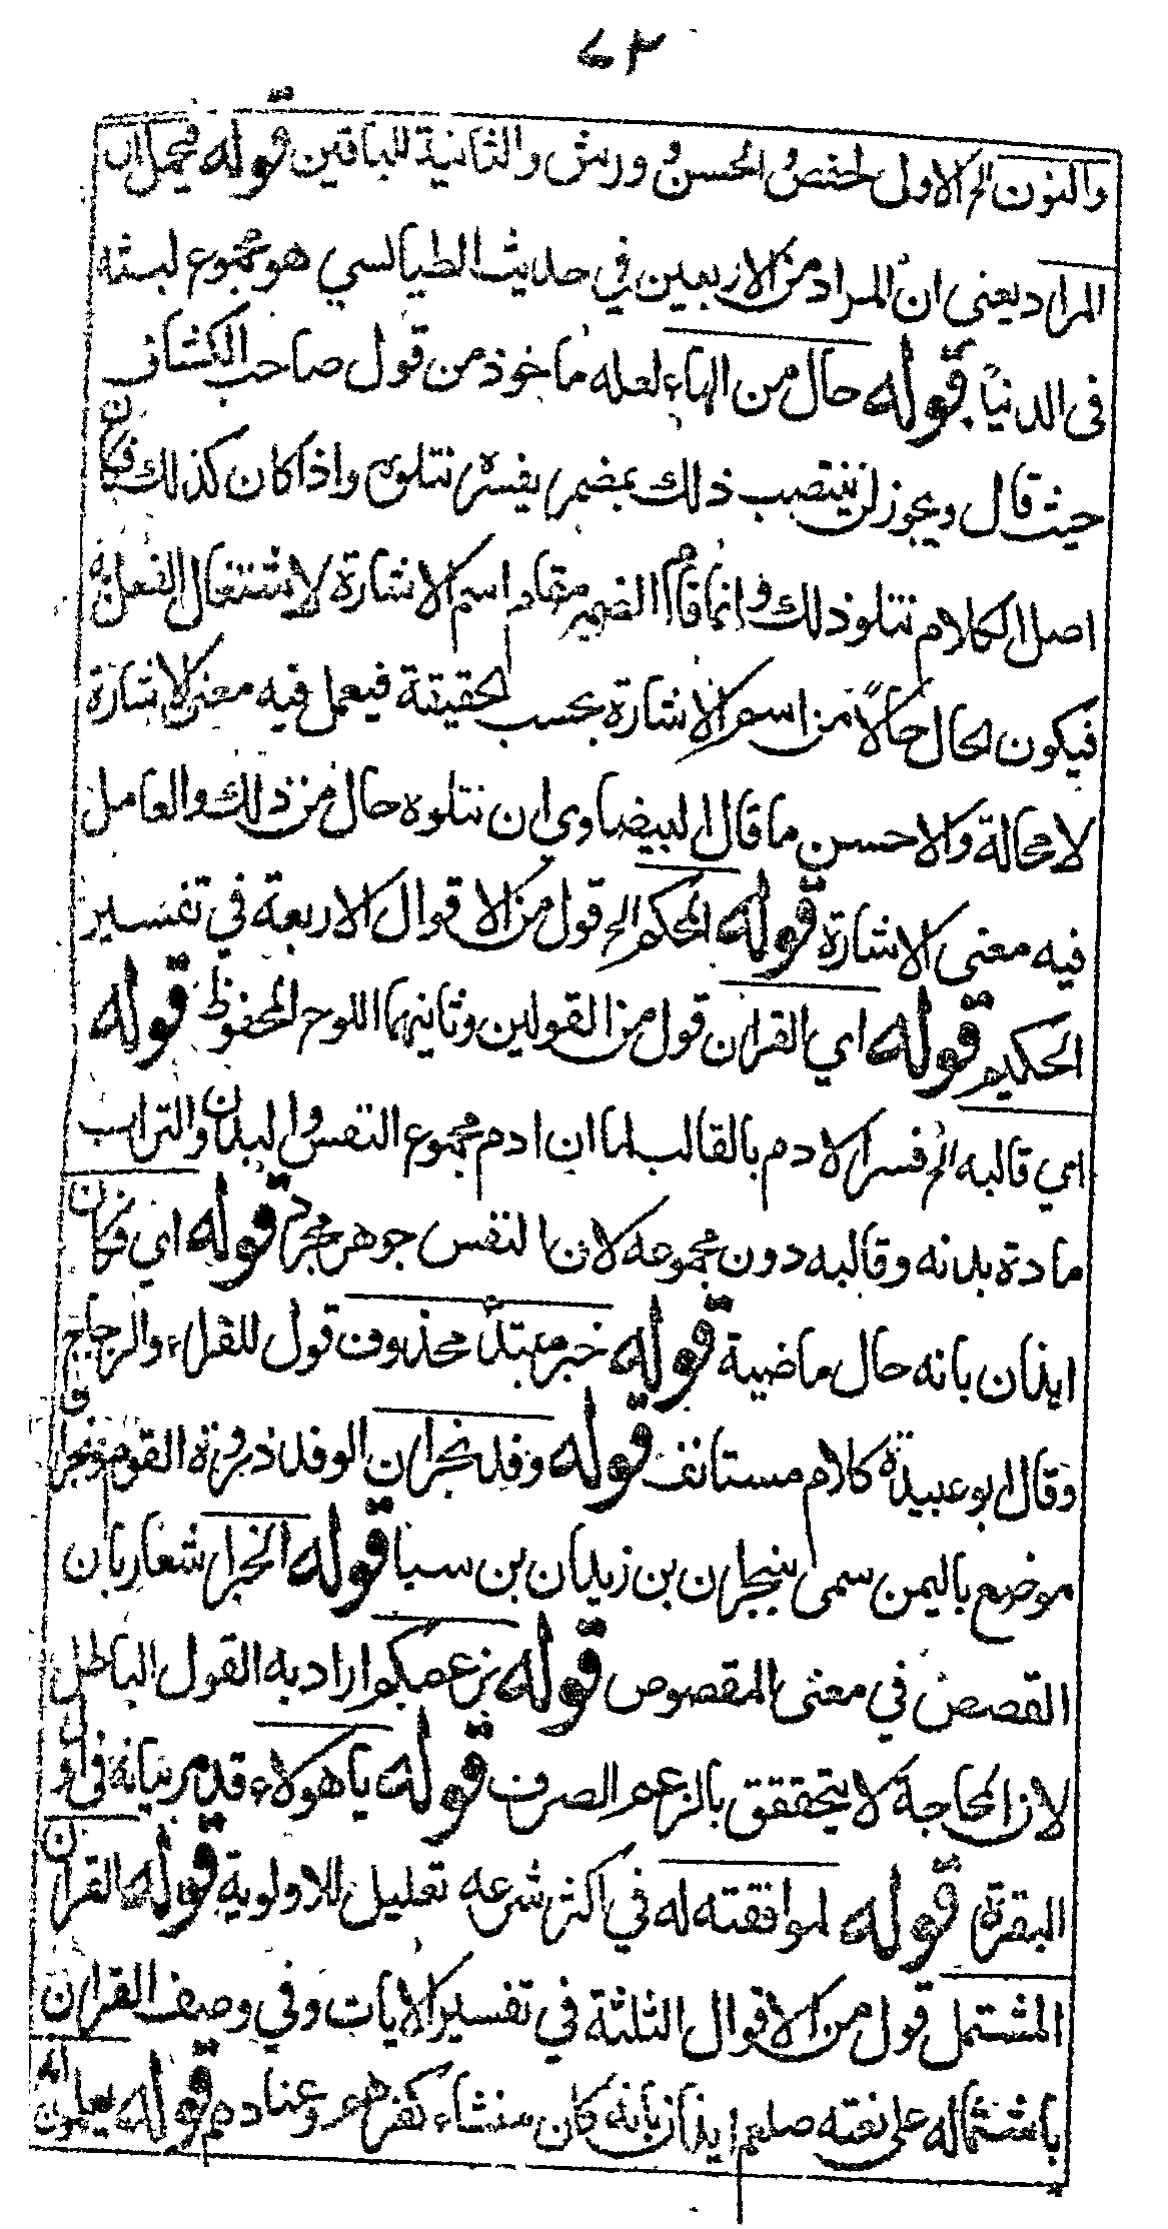 ٤٣
والنون الخ الاولى لحفص والحسن وورش والثانية للباقين قوله فيحمل ان
المراد يعنى ان المراد من الاربعين في حديث الطيالسي هو مجموع لبثه
فى الدنيا قوله حال من الهاء لعله ماخوذ من قول صاحب الكشاف
حيث قال ويجوز ان ينتصب ذلك بمضمر يفسره نتلوه واذا كان كذلك فكان
اصل الكلام نتلو ذلك وانما قام الضمير مقام اسم الاشارة لاشتغال الفعل به
فيكون الحال حالا من اسم الاشارة بحسب الحقيقة فيعمل فيه معنى الاشارة
لا محالة والاحسن ما قال البيضاوى ان نتلوه حال من ذلك والعامل
فيه معنى الاشارة قوله المحكم الخ قول من الاقوال الاربعة في تفسير
الحكيم قوله اي القران قول من القولين وثانيهما اللوح المحفوظ قوله
اي قالبه الخ فسر الادم بالقالب لما ان ادم مجموع النفس والبدن والتراب
مادة بدنه وقالبه دون مجموعه لان النفس جوهر مجرد قوله اي فكان
ايذان بانه حال ماضية قوله خبر مبتدأ محذوف قول للفراء والزجاج
وقال ابو عبيدة كلام مستانف قوله وفد نجران الوفد ذروة القوم ونجران
موضع باليمن سمى بنجران بن زيدان بن سبا قوله الخبر اشعار بان
القصص في معنى المقصوص قوله بزعمكم اراد به القول الباطل
لان المحاجة لا يتحققق بالزعم الصرف قوله يا هولاء قد مر بيانه فى اوائل
البقرة قوله لموافقته له في اكثر شرعه تعليل للاولوية قوله القران
المشتمل قول من الاقوال الثلثة في تفسير الايات وفي وصف القران
باشتماله على نعته صلعم ايذان بانه كان منشاء كفرهم وعنادهم قوله يعلمون انه